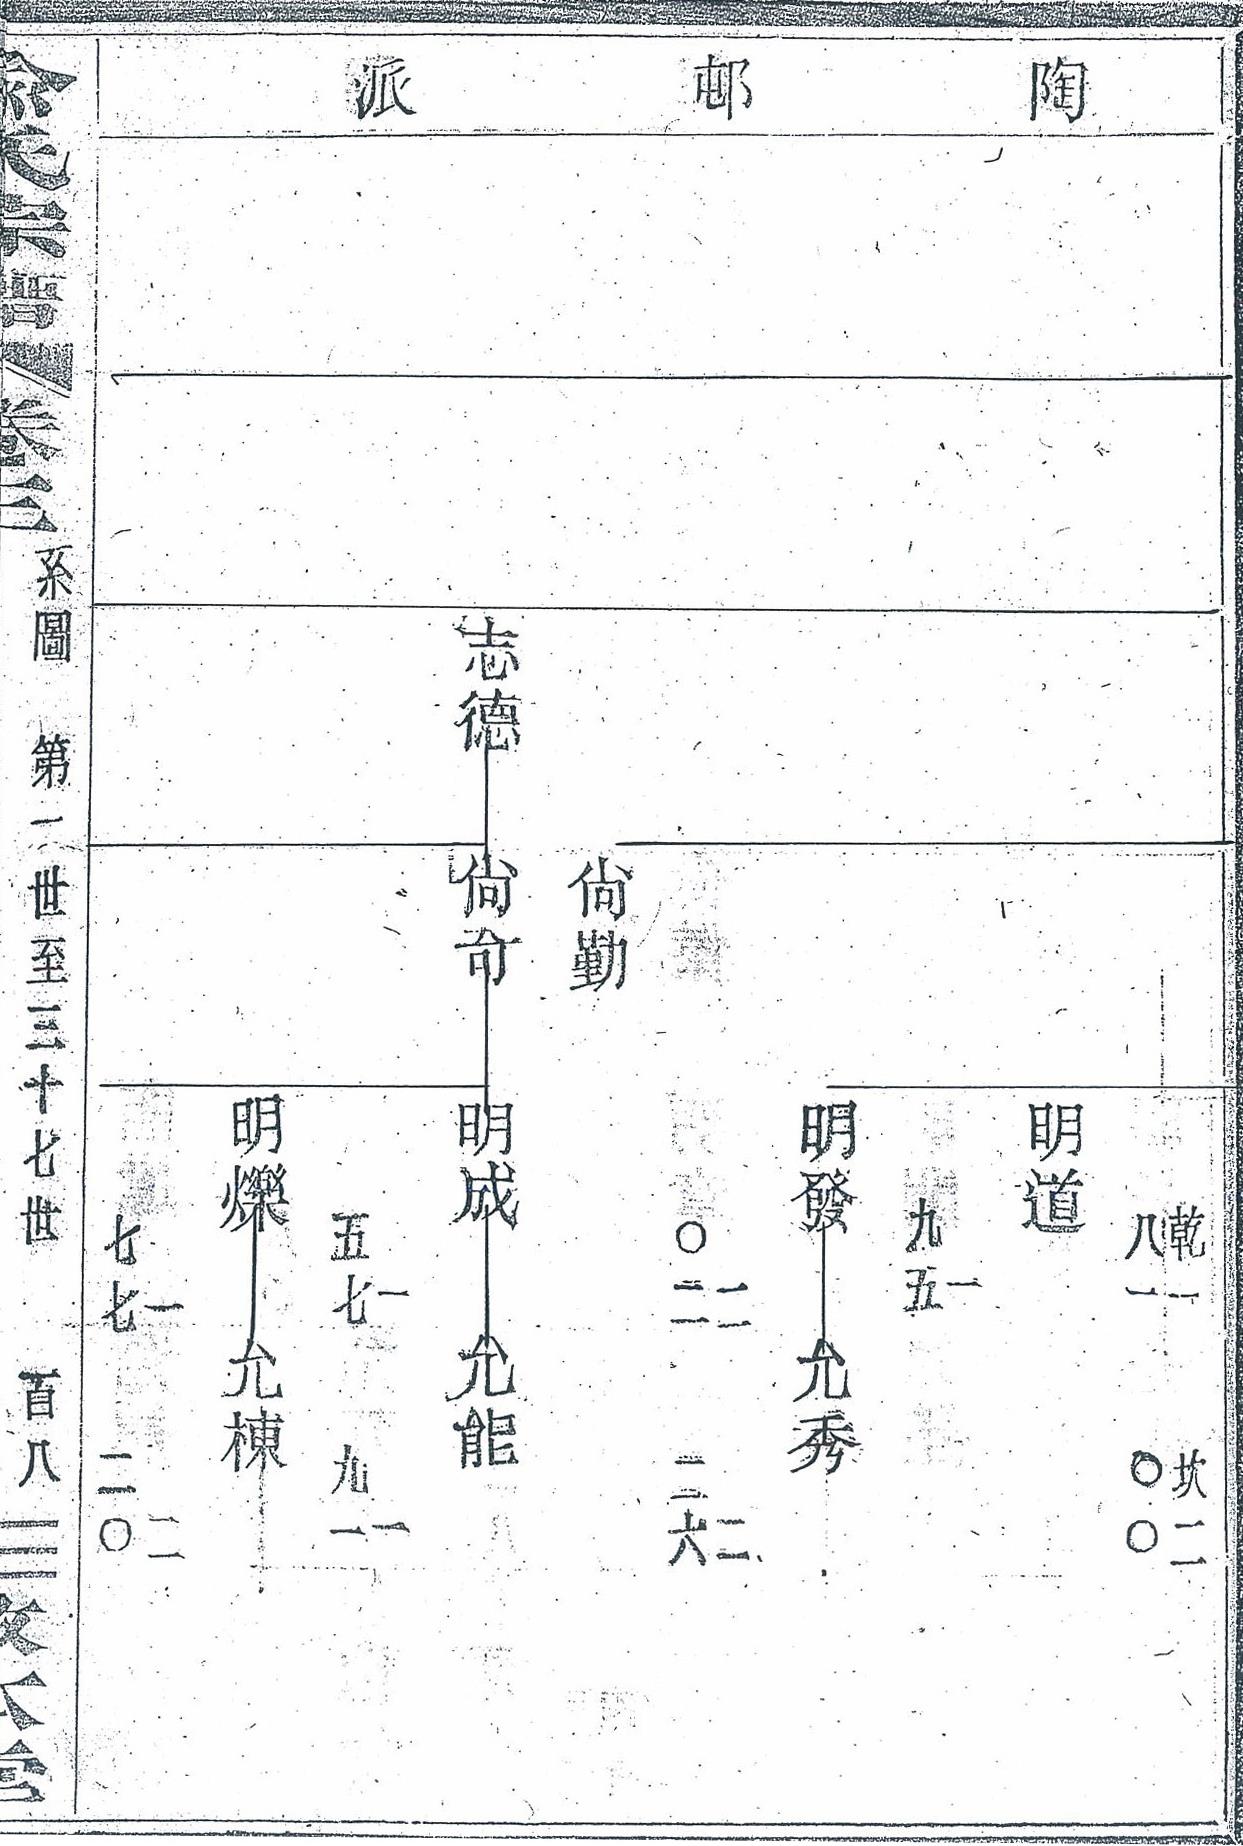 陶邨派
乾一
八一
坎二
〇〇
明道
一
九五
明發 允秀
二
〇二
二
二六
尙勤
志德 尙奇 明成 允能
一
五七
一
九一
明爍 允棟
一
七七
二
二〇
氏宗譜 卷三 系圖 第一世至三十七世 百八